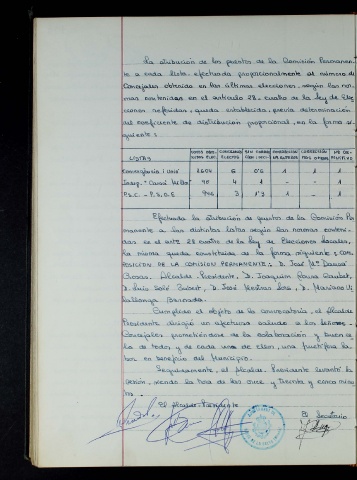 La atribución de los puestos de la Comisión Permanen-
te a cada lista, efectuada proporcionalmente al número de
Concejales obtenido en las últimas elecciones, según las nor-
mas contenidas en el artículo 28-cuatro de la Ley de Elec
ciones referidas, queda establecida, previa determinación
del coeficiente de distribución proporcional, en la forma si-
guiente:
LISTAS
Convergència i Unió 6 0'6 1 1 1
4 1 - - 1
P.S.C.-P.S.O.E 3 1 1 -
Efectuada la atribución de puestos de la Comisión Per
manente a las distintas listas según las normas conteni-
das en el artº 28 cuatro de la Ley de Elecciones Locales,
la misma queda constituida de la forma siguiente: COM
POSICION DE LA COMISION PERMANENTE: D. José Mª
Alcalde-Presidente, D. Joaquim
D. Luis Solé D. José D. Mariano
Vallonga
Cumplido el objeto de la convocatoria, el Alcalde
Presidente dirigió un afectuoso saludo a los Señores
Concejales prometiéndose de la colaboración y buen
de todos y de cada uno de ellos, una fructífera la-
bor en beneficio del Municipio.
Seguidamente, el Alcalde-Presidente levantó la
sesión, siendo la hora de las once y treinta y cinco minu
tos.
El Alcalde-Presidente
El Secretario